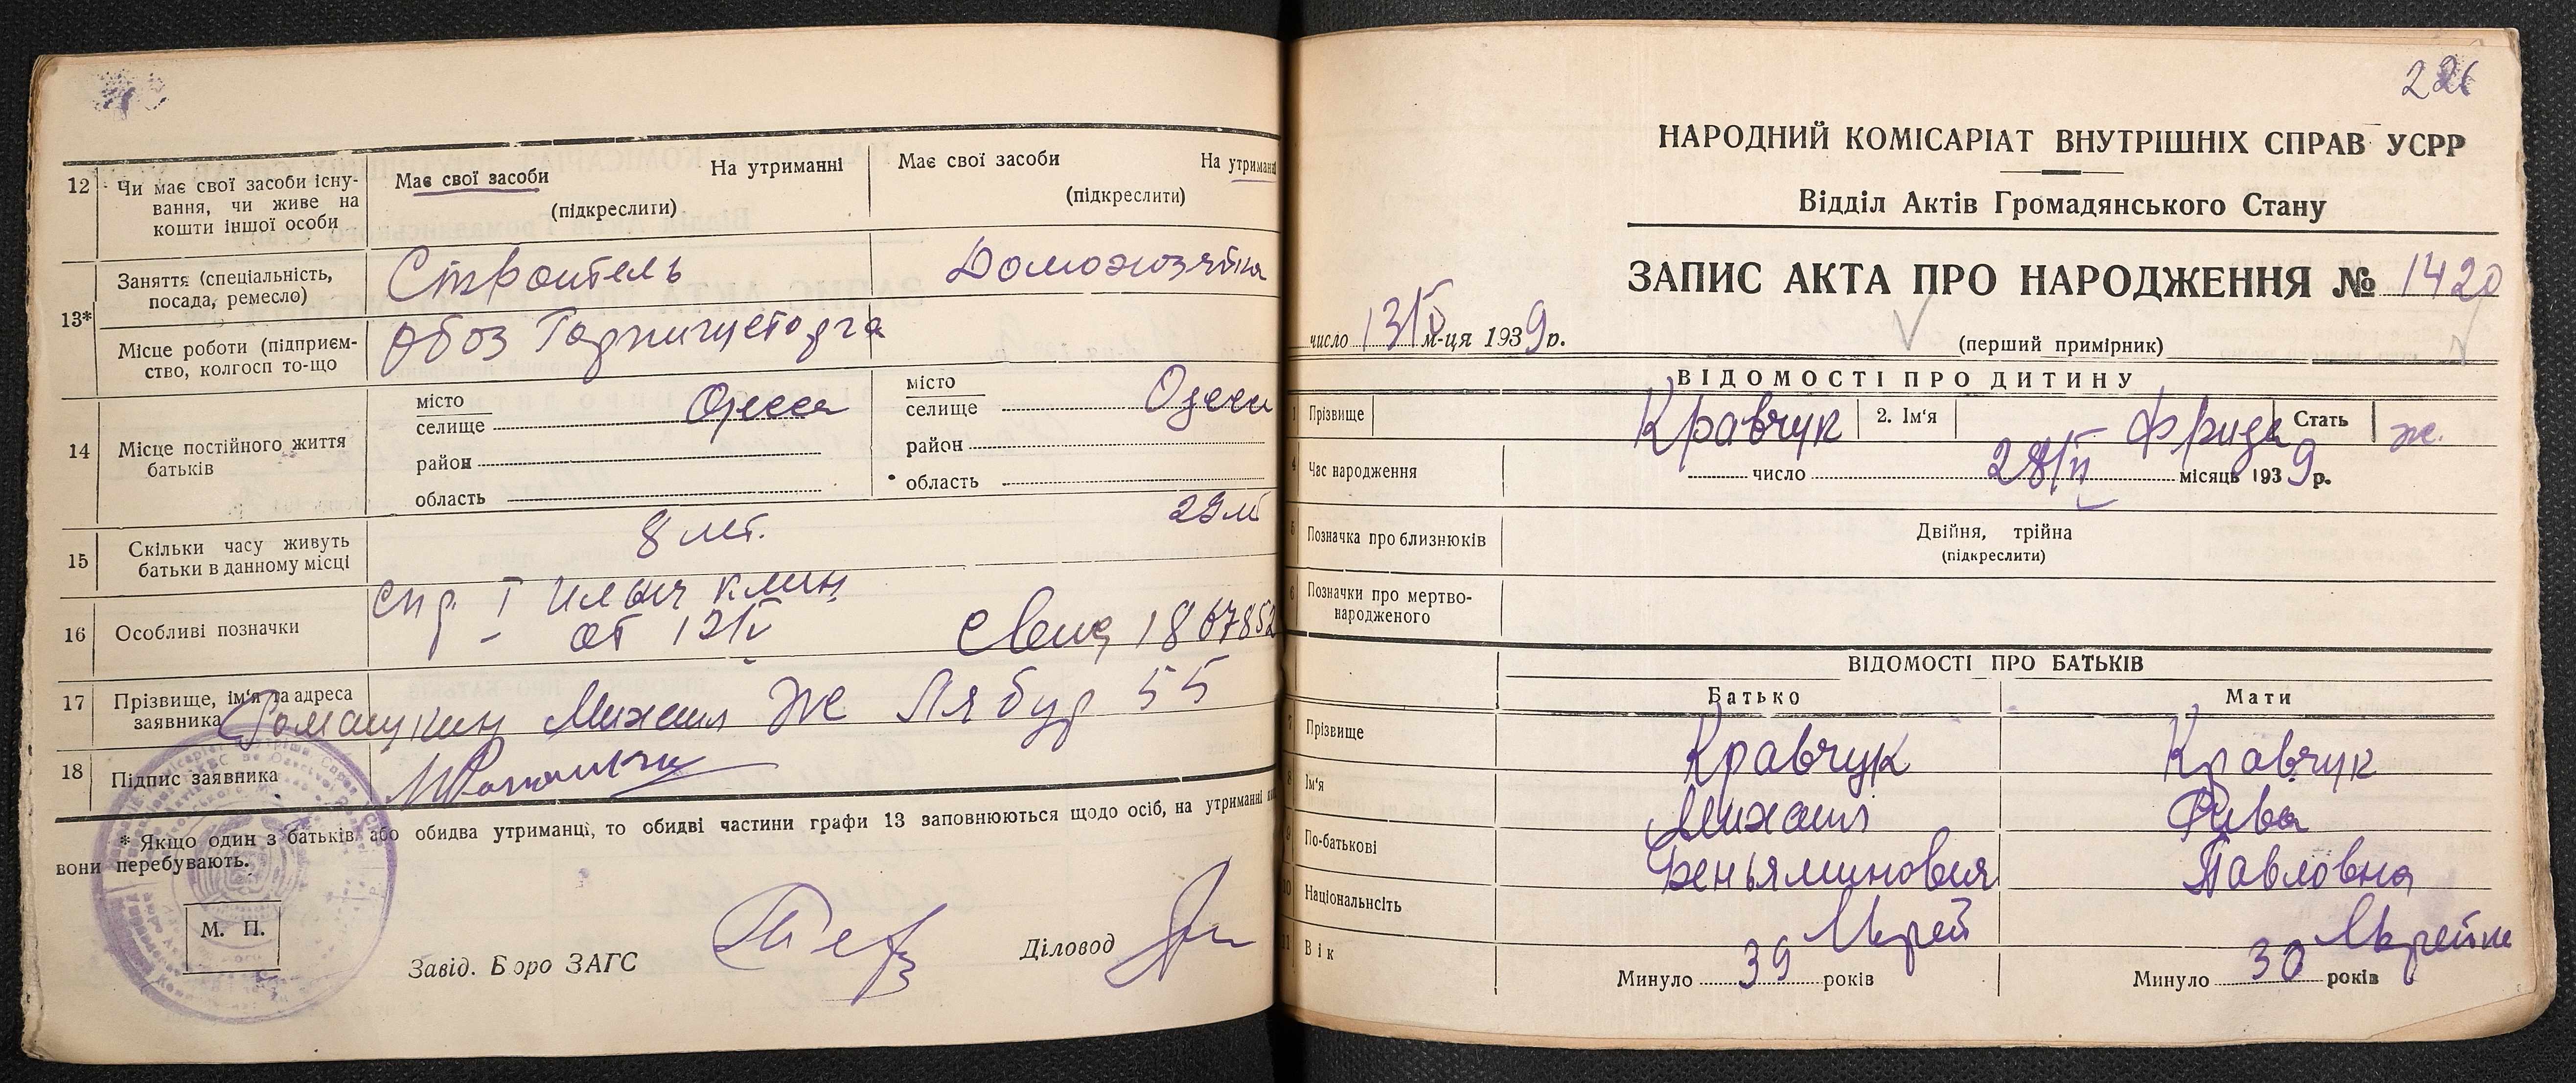 12 Чи має свої засоби існу-
вання, чи живе на
кошти іншої особи
Має свої засоби На утриманні
(підкреслити)
Має свої засоби На утриманні
(підкреслити)
13*
Заняття (спеціальність,
посада, ремесло)
Строитель
Домохозяйка
Місце роботи (підприєм-
ство, колгосп то-що
Обоз
14 Місце постійного життя
батьків
місто
селище Одесса
район
область
місто
селище Одесса
район
область
15 Скільки часу живуть
батьки в данному місці
8 лет.
29 л
16 Особливі позначки
Спр. I клин
от 12/V 1867852
17 Прізвище, ім'я та адреса
заявника
Михаил 55
18 Підпис заявника
* Якщо один з батьків або обидва утриманці, то обидві частини графи 13 заповнюються щодо осіб, на утриманні
вони перебувають.
М. П.
Завід. Бюро ЗАГС
Діловод
НАРОДНИЙ КОМІСАРІАТ ВНУТРІШНІХ СПРАВ УСРР
Відділ Актів Громадянського Стану
ЗАПИС АКТА ПРО НАРОДЖЕННЯ № 1420
число 13/V м-ця 1939 р.
(перший примірник)
ВІДОМОСТІ ПРО ДИТИНУ
1 Прізвище Кравчук 2. Ім'я Фрида Стать ж.
4 Час народження число 28/IV місяць 1939 р.
5 Позначка про близнюків Двійня, трійна
(підкреслити)
6 Позначки про мертво-
народженого
ВІДОМОСТІ ПРО БАТЬКІВ
Батько Мати
7 Прізвище Кравчук Кравчук
8 Ім'я Михаил Рива
9 По-батькові Беньяминович Павловна
10 Національність Еврей Еврейка
11 Вік Минуло 39 років Минуло 30 років